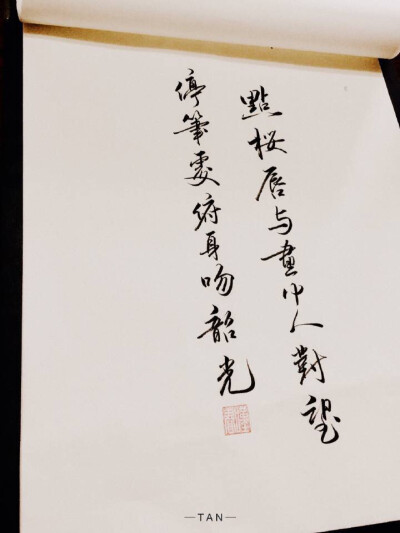 點桜唇与畫中人對望
停筆處俯身吻韶光
—TAN—